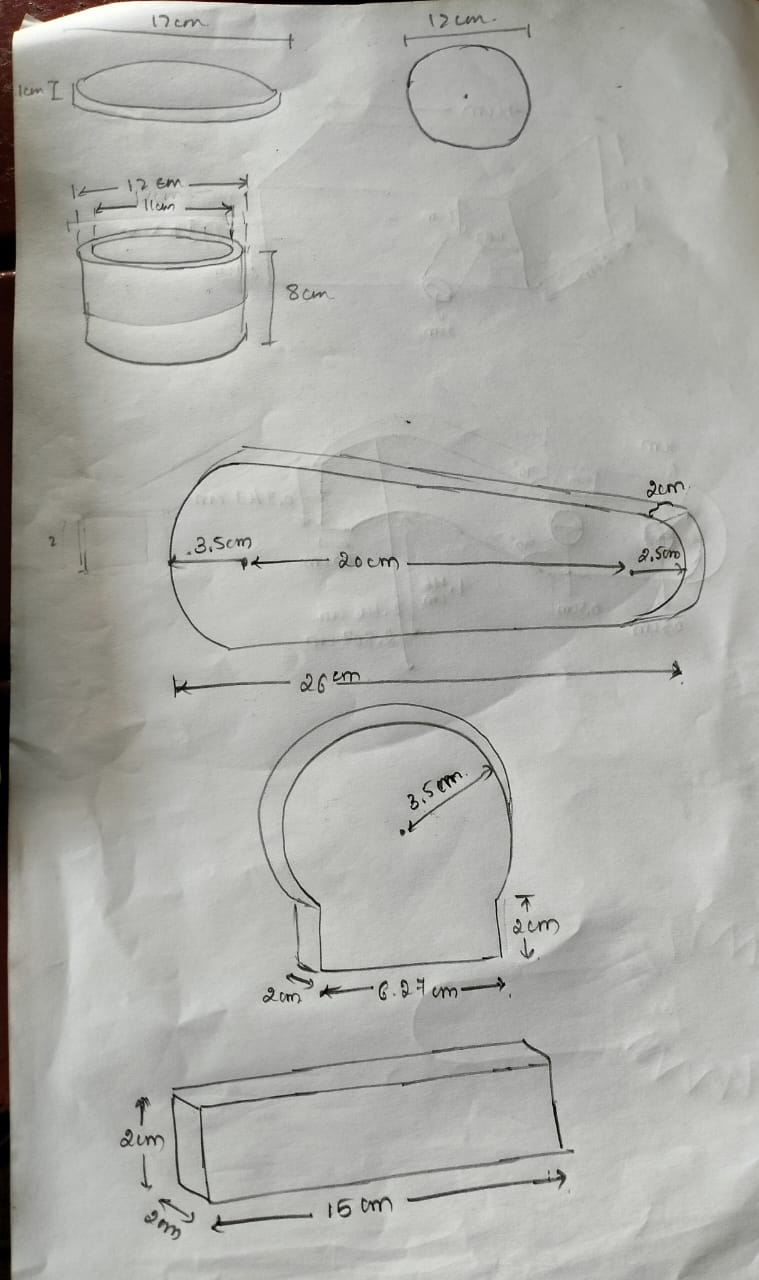 12cm
12cm.
1cm
12 cm
11cm
8cm
2cm
3.5cm
20cm
2.5cm
26cm
3.5cm.
2cm
2cm
6.27cm
2cm
2cm
15cm